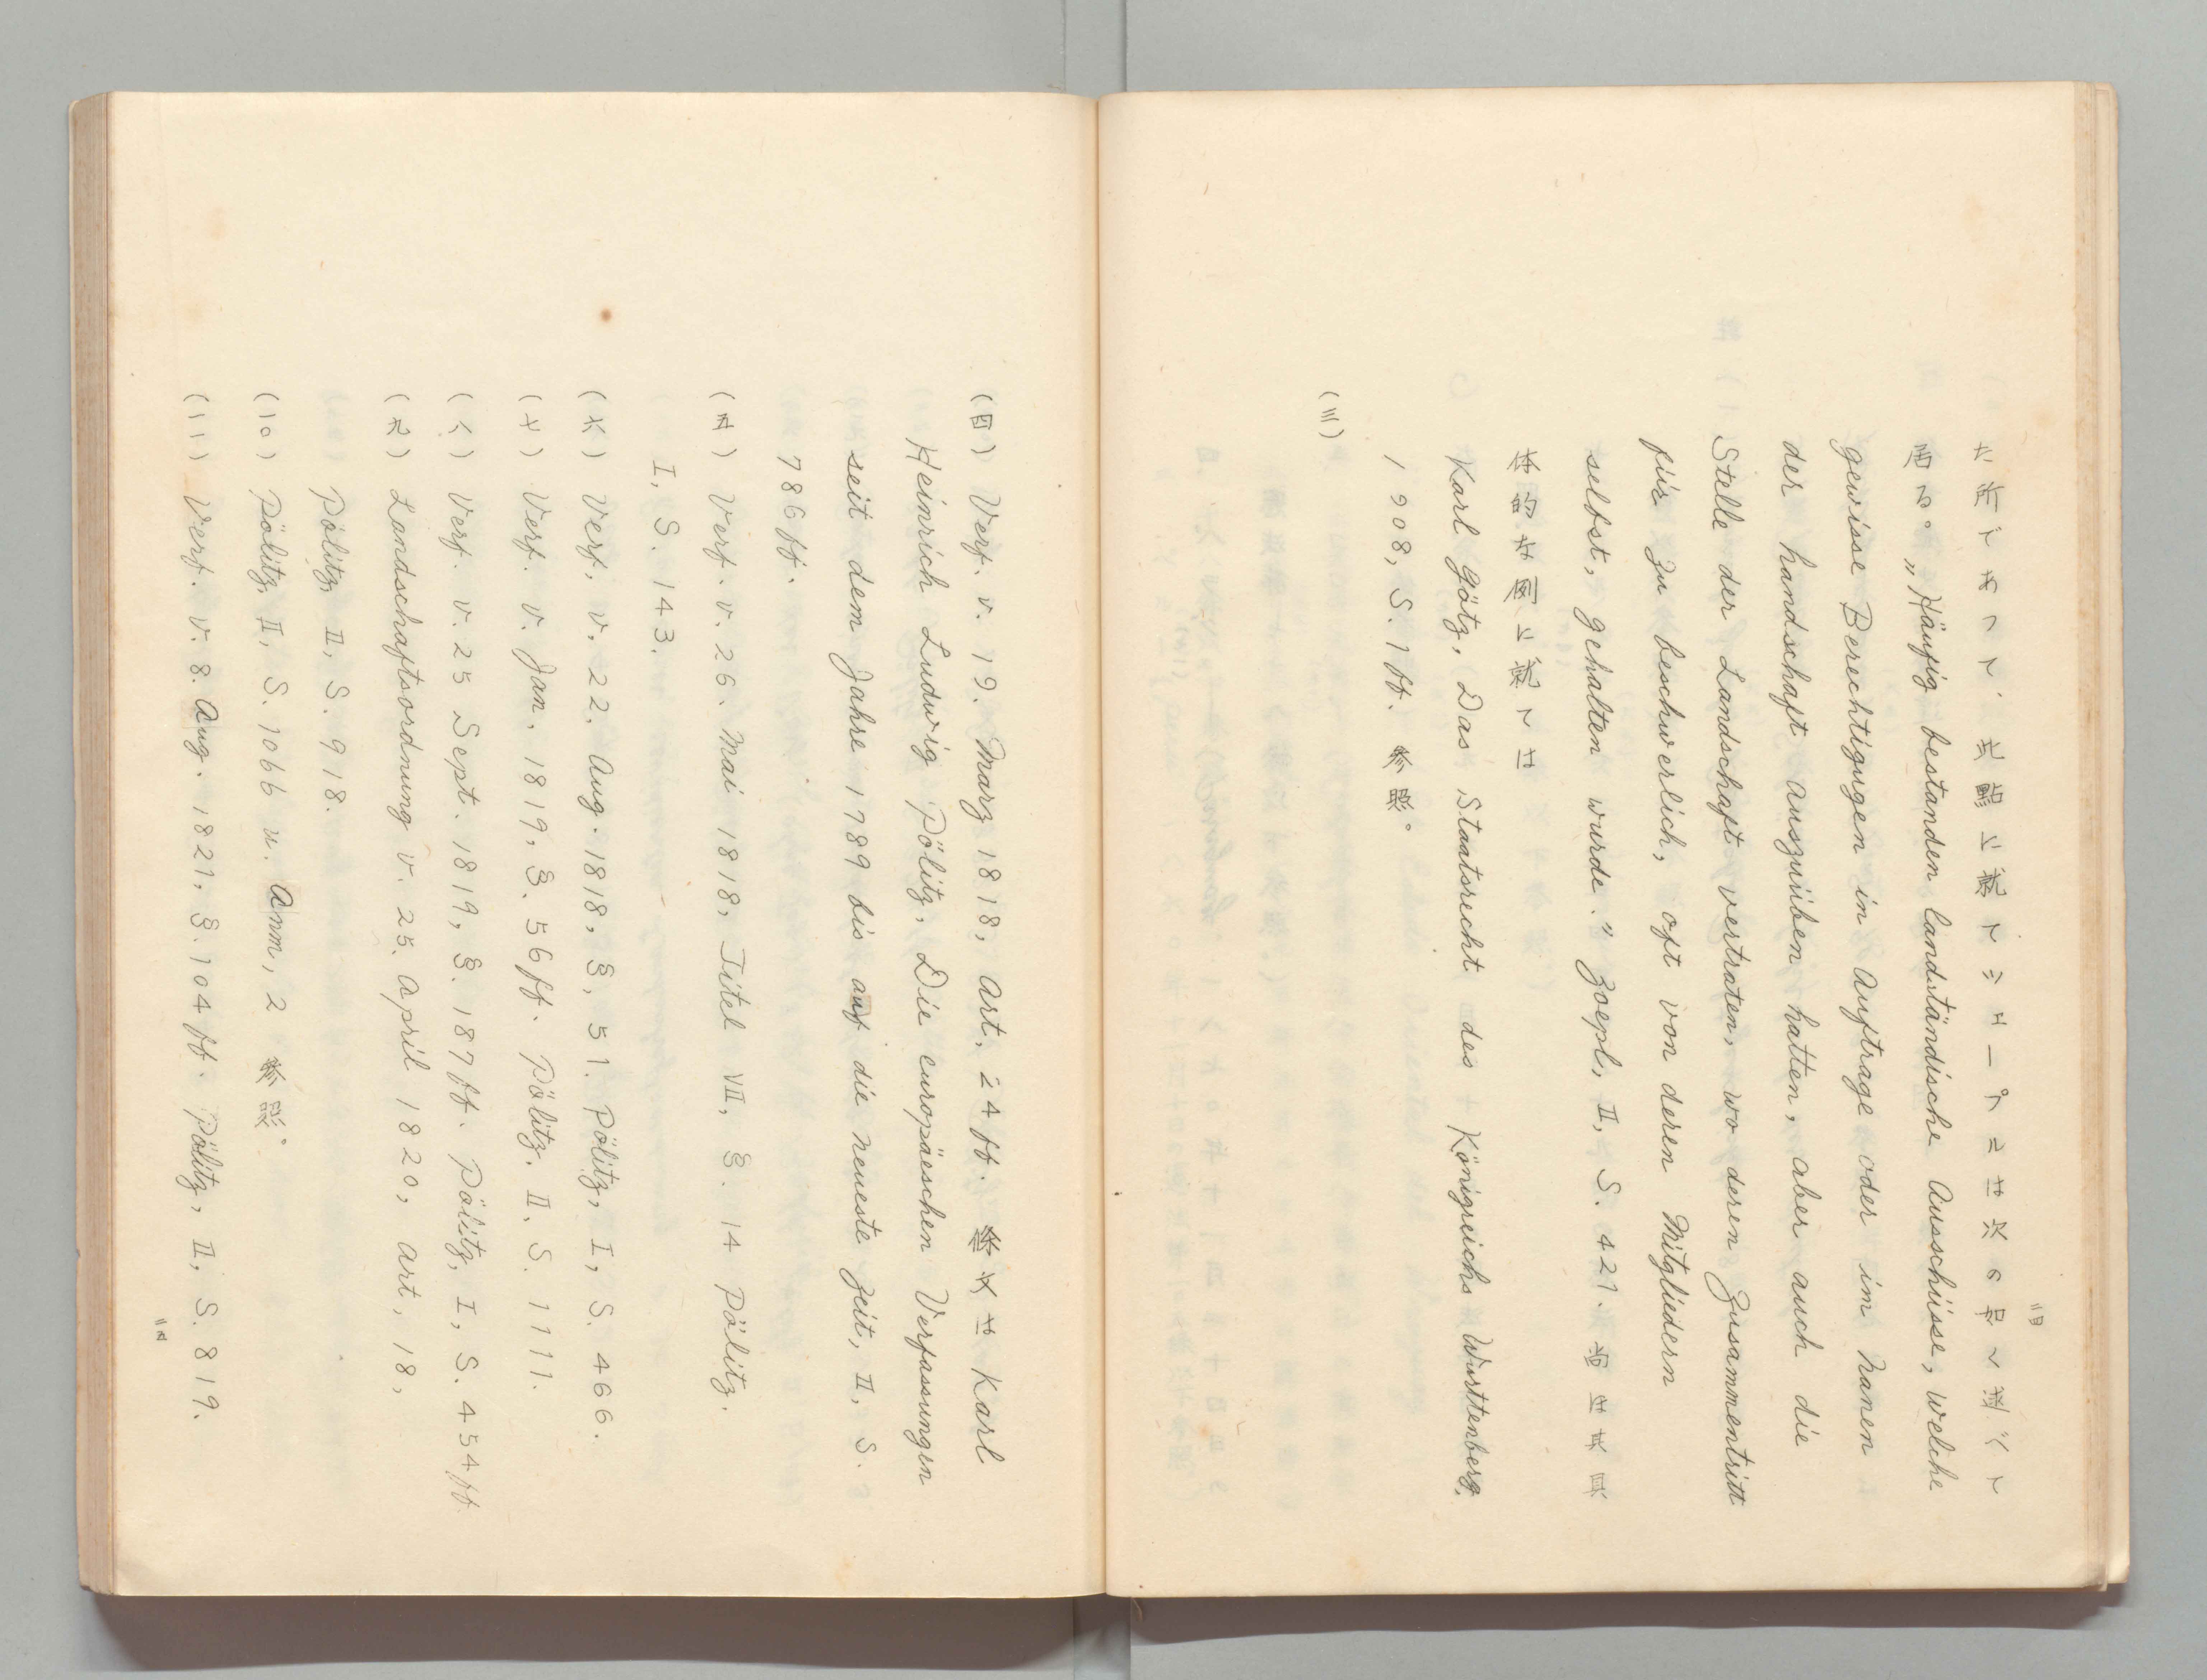 た所であつて、此點に就てツエープエは次の如く述べて
居る。„Häufig bestanden landständische Ausschüsse, welche
gewisse Berechtigugen in Auftrage oder im Nanen
der handschaft auszuüben hatten, aber auch die
Stelle der Landschaft vertraten, wo deren Zusammentritt
für zu beschwerlich, oft von deren Mitgliedern
selbst, gehalten wurde.“ Zoepl, II, S. 421. 尚ほ其具
体的な例に就ては
Karl Götz, Das Staatsrecht des Königreichs Württenberg,
1908, S. 1ff. 参照。
(三)
二四
(四) Verf. v. 19. Marz 1818, Art. 24ff. Karl
Heinrich Ludwig Pölitz, Die europäeschen Verfassungen
seit dem Jahre 1789 bis auf die neueste Zeit, II, S.
786ff.
(五) Verf. v. 26. Mai 1818, Titel VII, §. 14 Pölitz.
I, S. 143.
(六) Verf. v. 22. Aug. 1818, §. 51. Pölitz, I, S. 466.
(七) Verf. v. Jan. 1819, §. 56ff. Pölitz. II, S. 1111.
(八) Verf. v. 25 Sept. 1819, §. 187ff. Pölitz, I, S. 454ff.
(九) Landschaftsordnung v. 25. April 1820, Art, 18,
Pölitz, II, S. 918.
(一〇) Pölitz, II, S. 1066 u. Anm, 2 参照。
(一一) Verf. v. 8. Aug. 1821, §. 104ff. Pölitz, II, S. 819.
二五